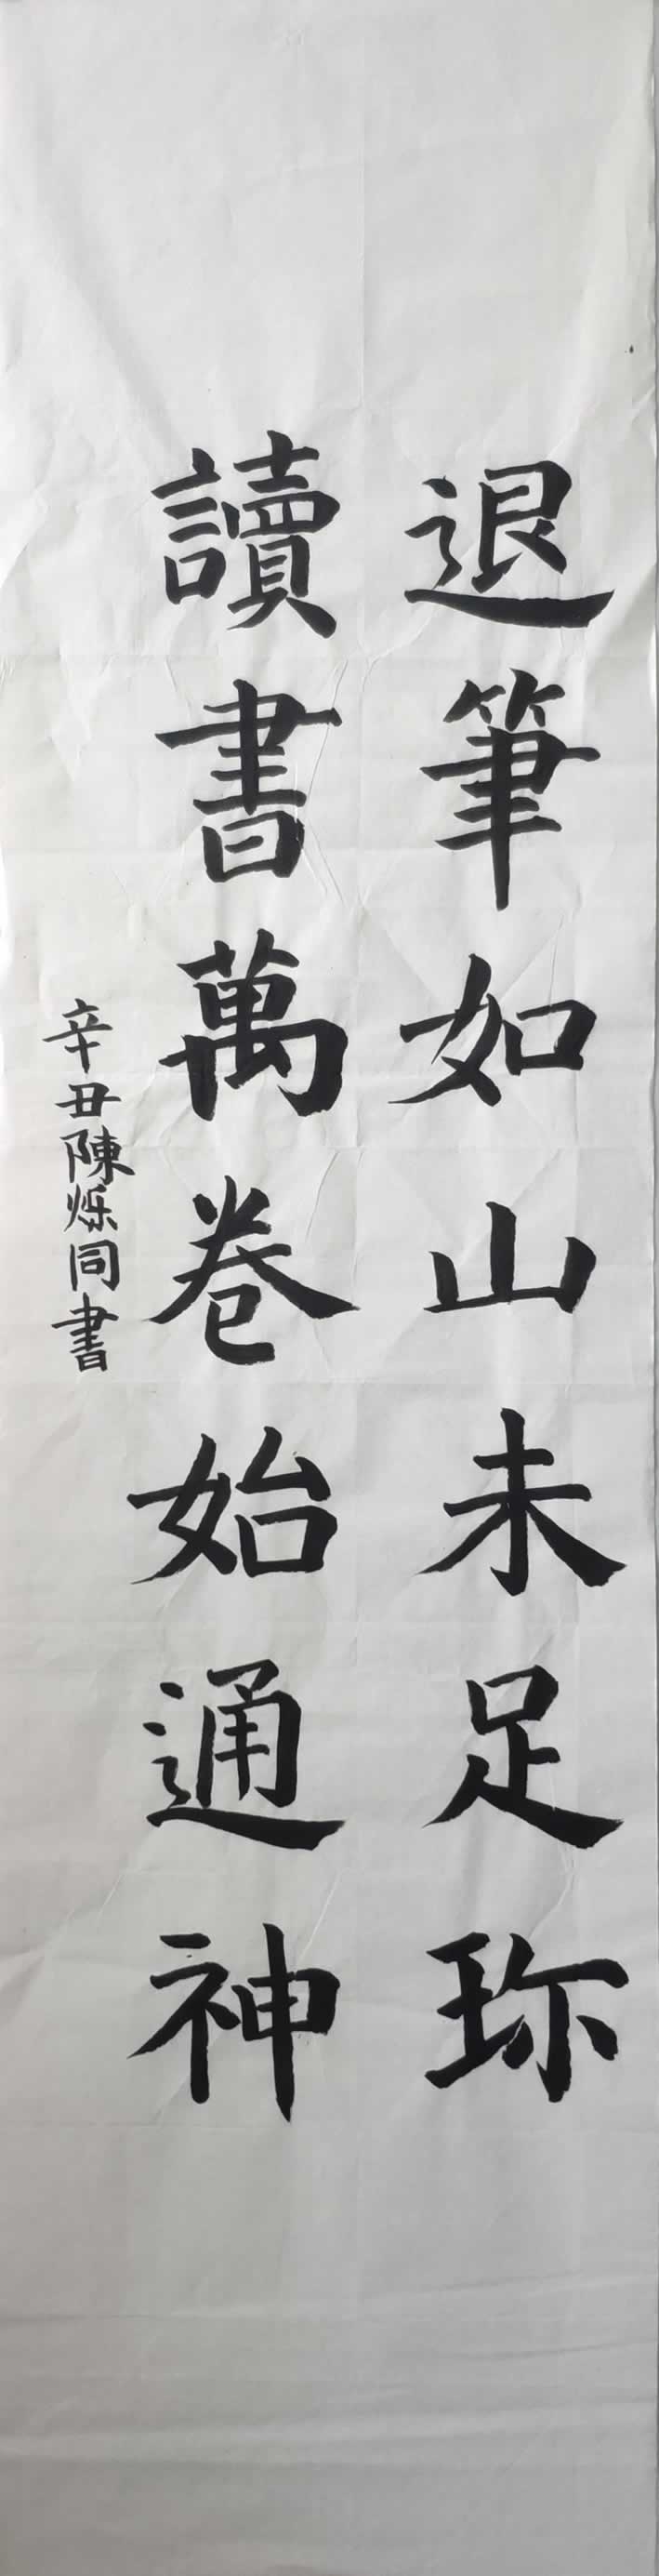 退筆如山未足珎
讀書萬卷始通神
辛丑陳烁同書